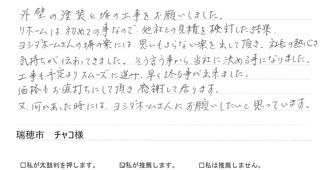 外壁の塗装と塀の工事をお願いしました。
リホームは初めての事なので、他社とも見積を検討した結果、
ヨシダホームさんの塀の案には、思いもよらない案を出して頂き、社長の熱心さ
気持ちが伝わってきました。そう言う事から、当社に決める事になりました。
工事も予定よりスムーズに進み、早く終る事が出来ました。
価格もお値打ちにして頂き、感謝して居ります。
又、何かあった時には、ヨシダホームさんにお願いしたいと思っています。
瑞穂市 チャコ様
□私が太鼓判を押します。 ☑私が推薦します。 □私は推薦しません。